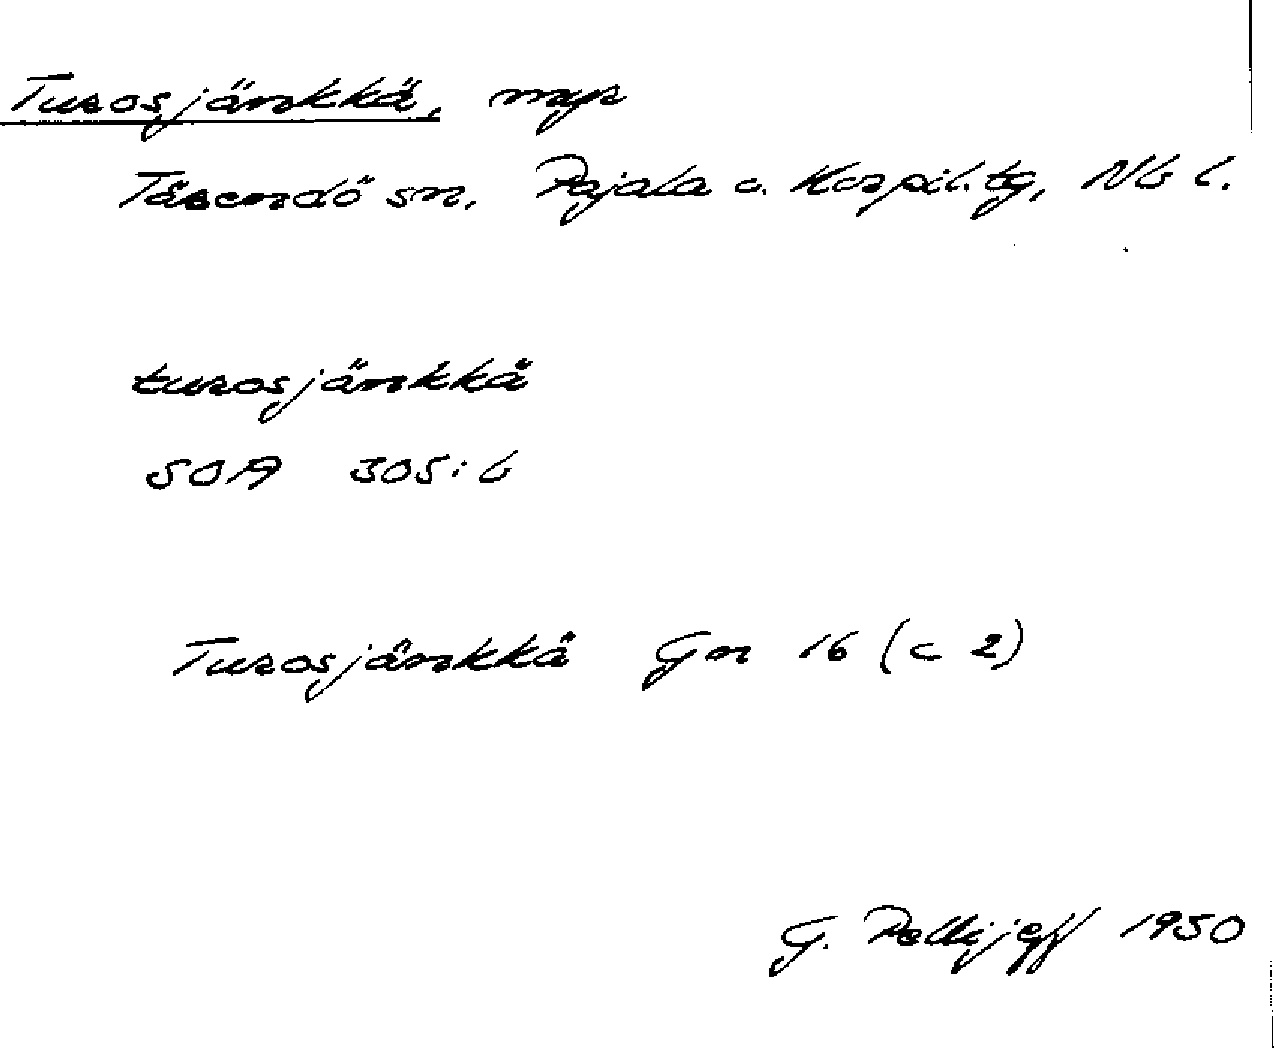 Turosjänkkä, myr
Tärendö sn. Pajala o. Korpil. tg, Nb l.
turosjänkkä
SOA 305:6
Turosjänkkä Gn 16 (c 2)
G. Pellijeff 1950